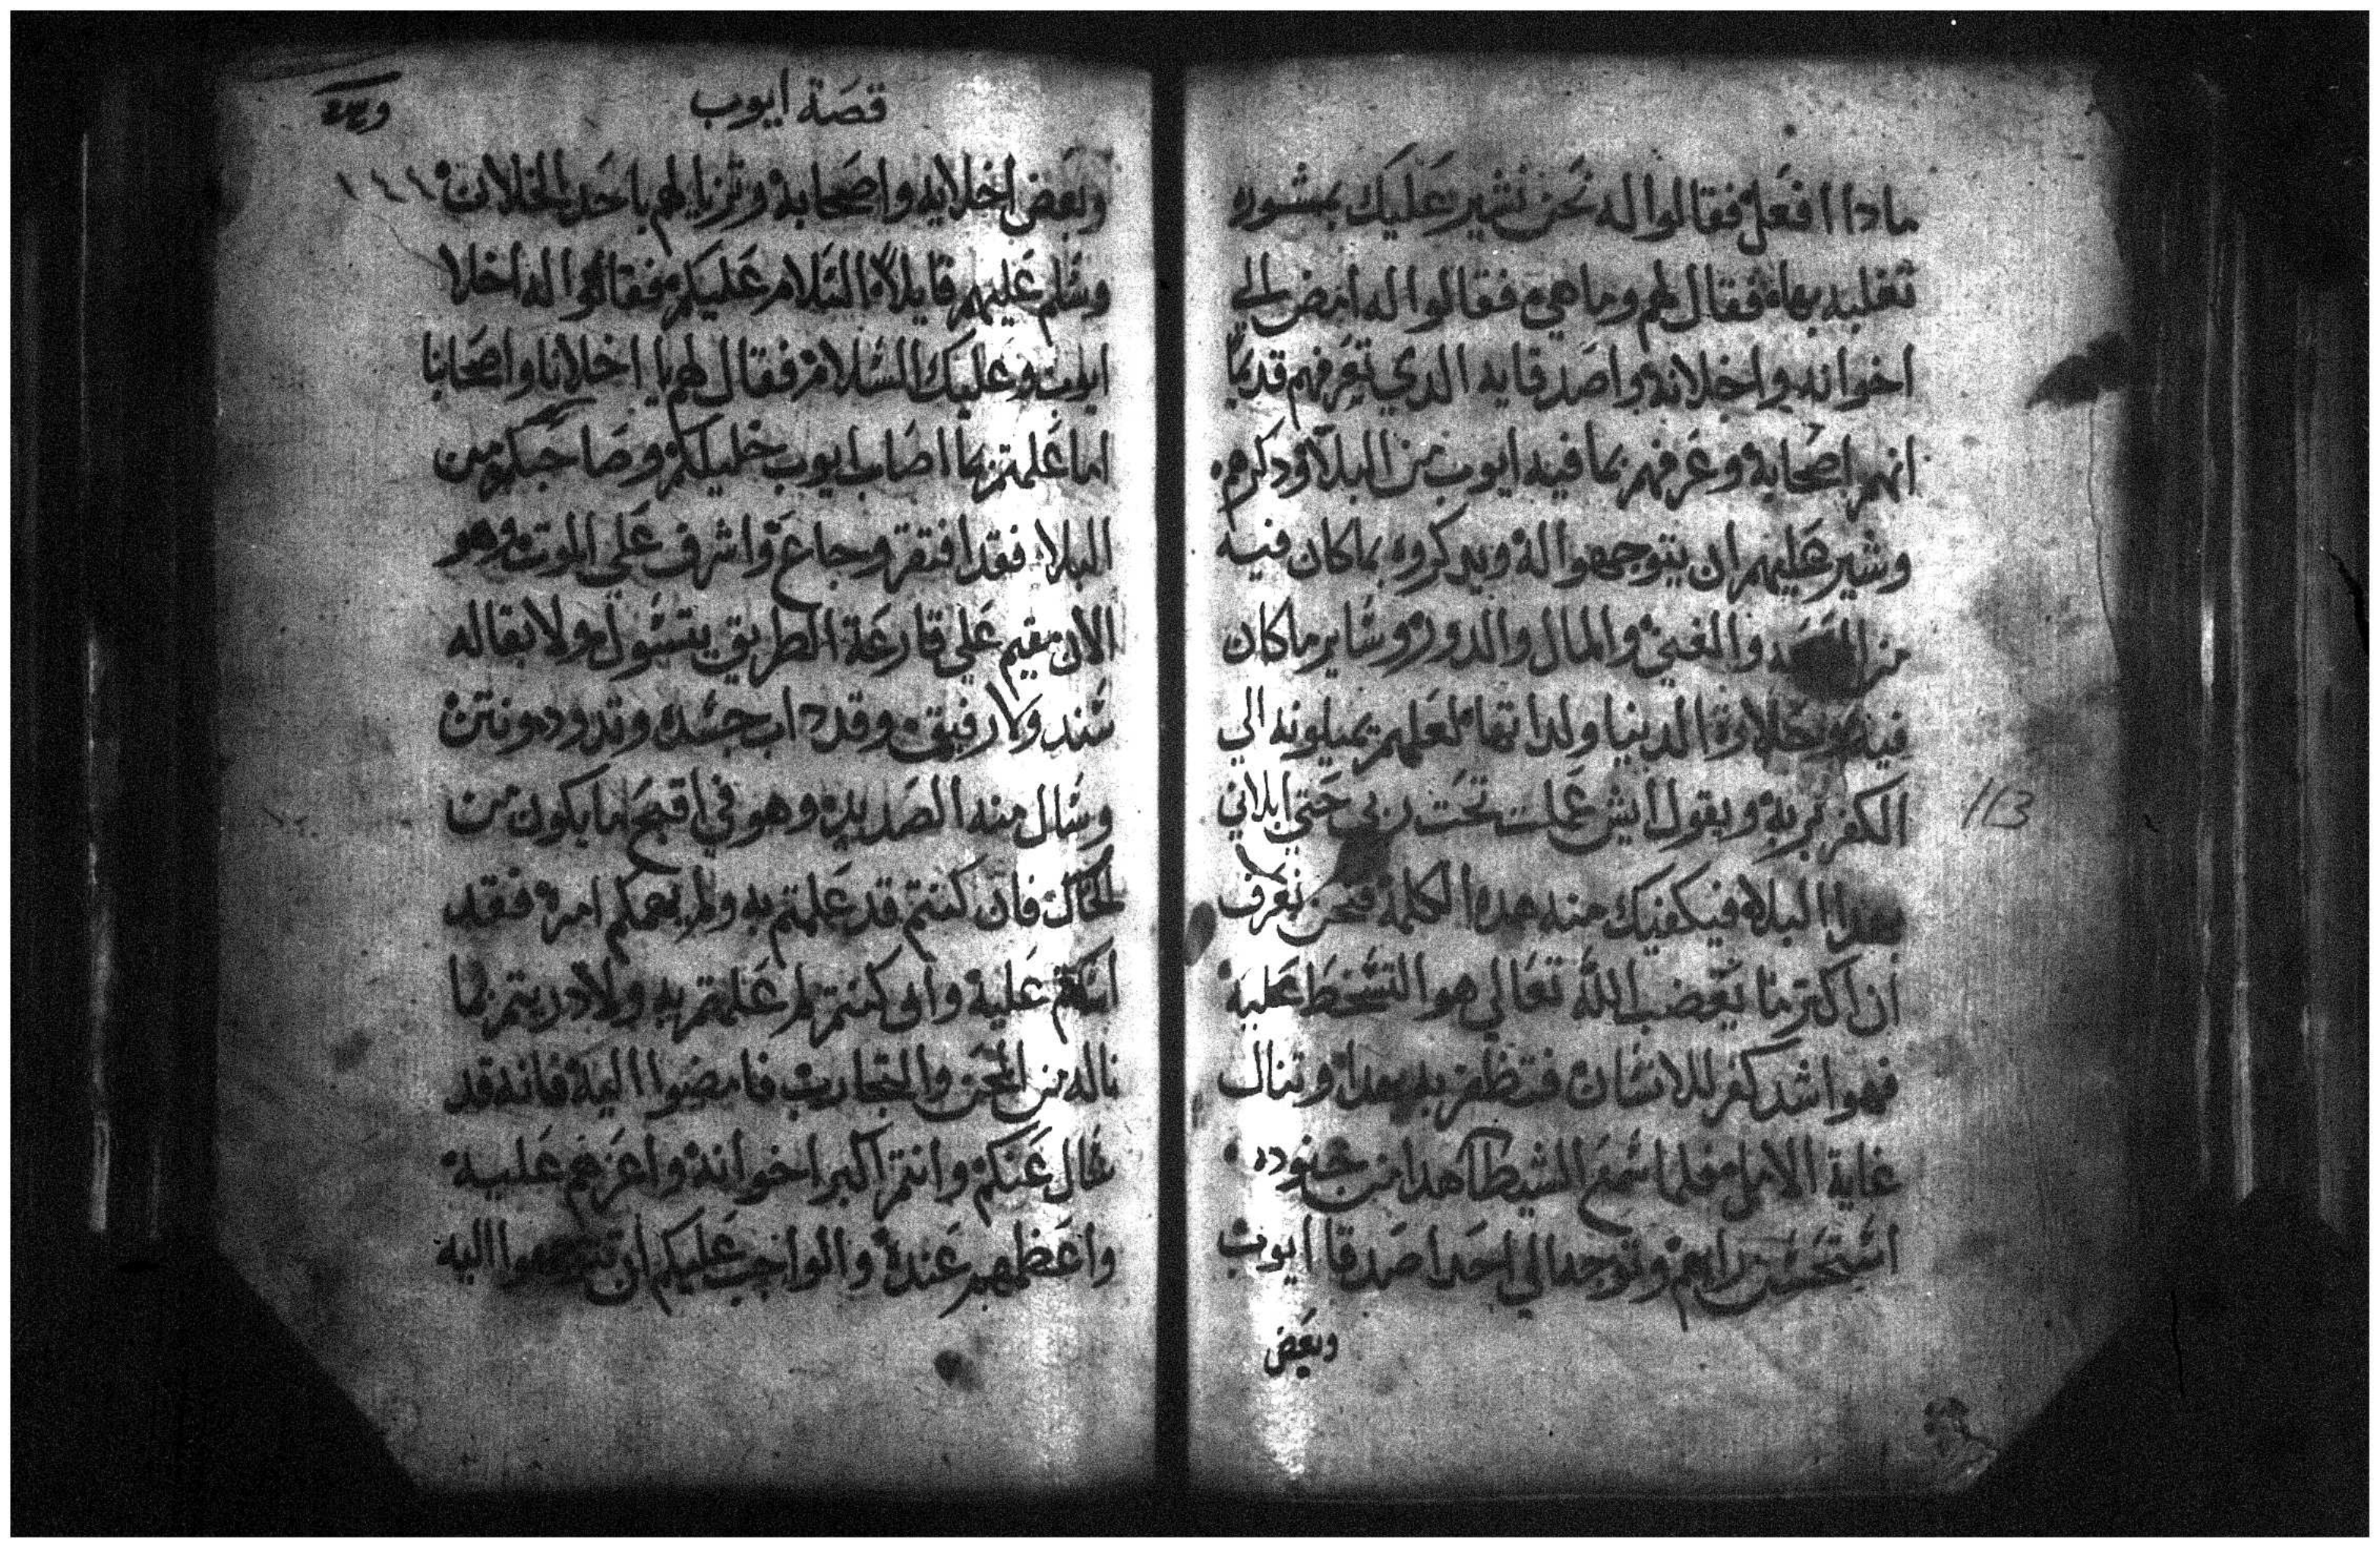 ماذا افعل فقالوا له نحن نشير عليك بمشوره
تغلبه بها فقال لهم وما هي فقالوا له امض الي
اخوانه واخلانه واصدقايه الدي تعرفهم قديما
انهم اصحابه وعرفهم بما فيه ايوب من البلا ودكرهم
وشير عليهم ان يتوجهوا له ويدكروه بماكان فيه
من والغني والمال والدور وساير ماكان
فيه من حلاوة الدنيا ولداتها لعلهم يميلونه الي
الكفر بربه ويقول ايش عملت تحت ربي حتي ابلاني
بهدا البلاء فيكفيك منه هده الكلمة فنحن نعرف
ان اكتر ما يغضب الله تعالي هو التسخط عليه
فهو اشد كفر للانسان فتظفر به بهدا وتنال
غاية الامل فلما سمع الشيطا هدا من جنوده
استحسن رايهم وتوجه الي احد اصدقا ايوب
وبعض
113
قصة ايوب
وبعض اخلايه واصحابه وتزيا لهم باحد الخلان
١٤١
وسلم عليهم قايلاً السلام عليكم فقالوا له اخلا
ايوب وعليك السلام فقال لهم يا اخلانا واصحابنا
اما علمتم بما اصاب ايوب خليلكم وصاحبكم من
البلاء فقد افتقر وجاع واشرف علي الموت وهو
الان مقيم علي قارعة الطريق يتسول ولا بقا له
سند ولا رفيق وقد داب جسده وتدود ونتن
وسال منه الصديد وهو في اقبح ما يكون من
الحال فان كنتم قد علمتم به ولم يهمكم امره فقد
عليه وان كنتم لم علمتم به ولا دريتم بما
ناله من المحن والتجارب فامضوا اليه فانه قد
سال عنكم وانتم اكبر اخوانه واعزهم عليه
واعظمهم عنده والواجب عليكم ان تتوجهوا اليه